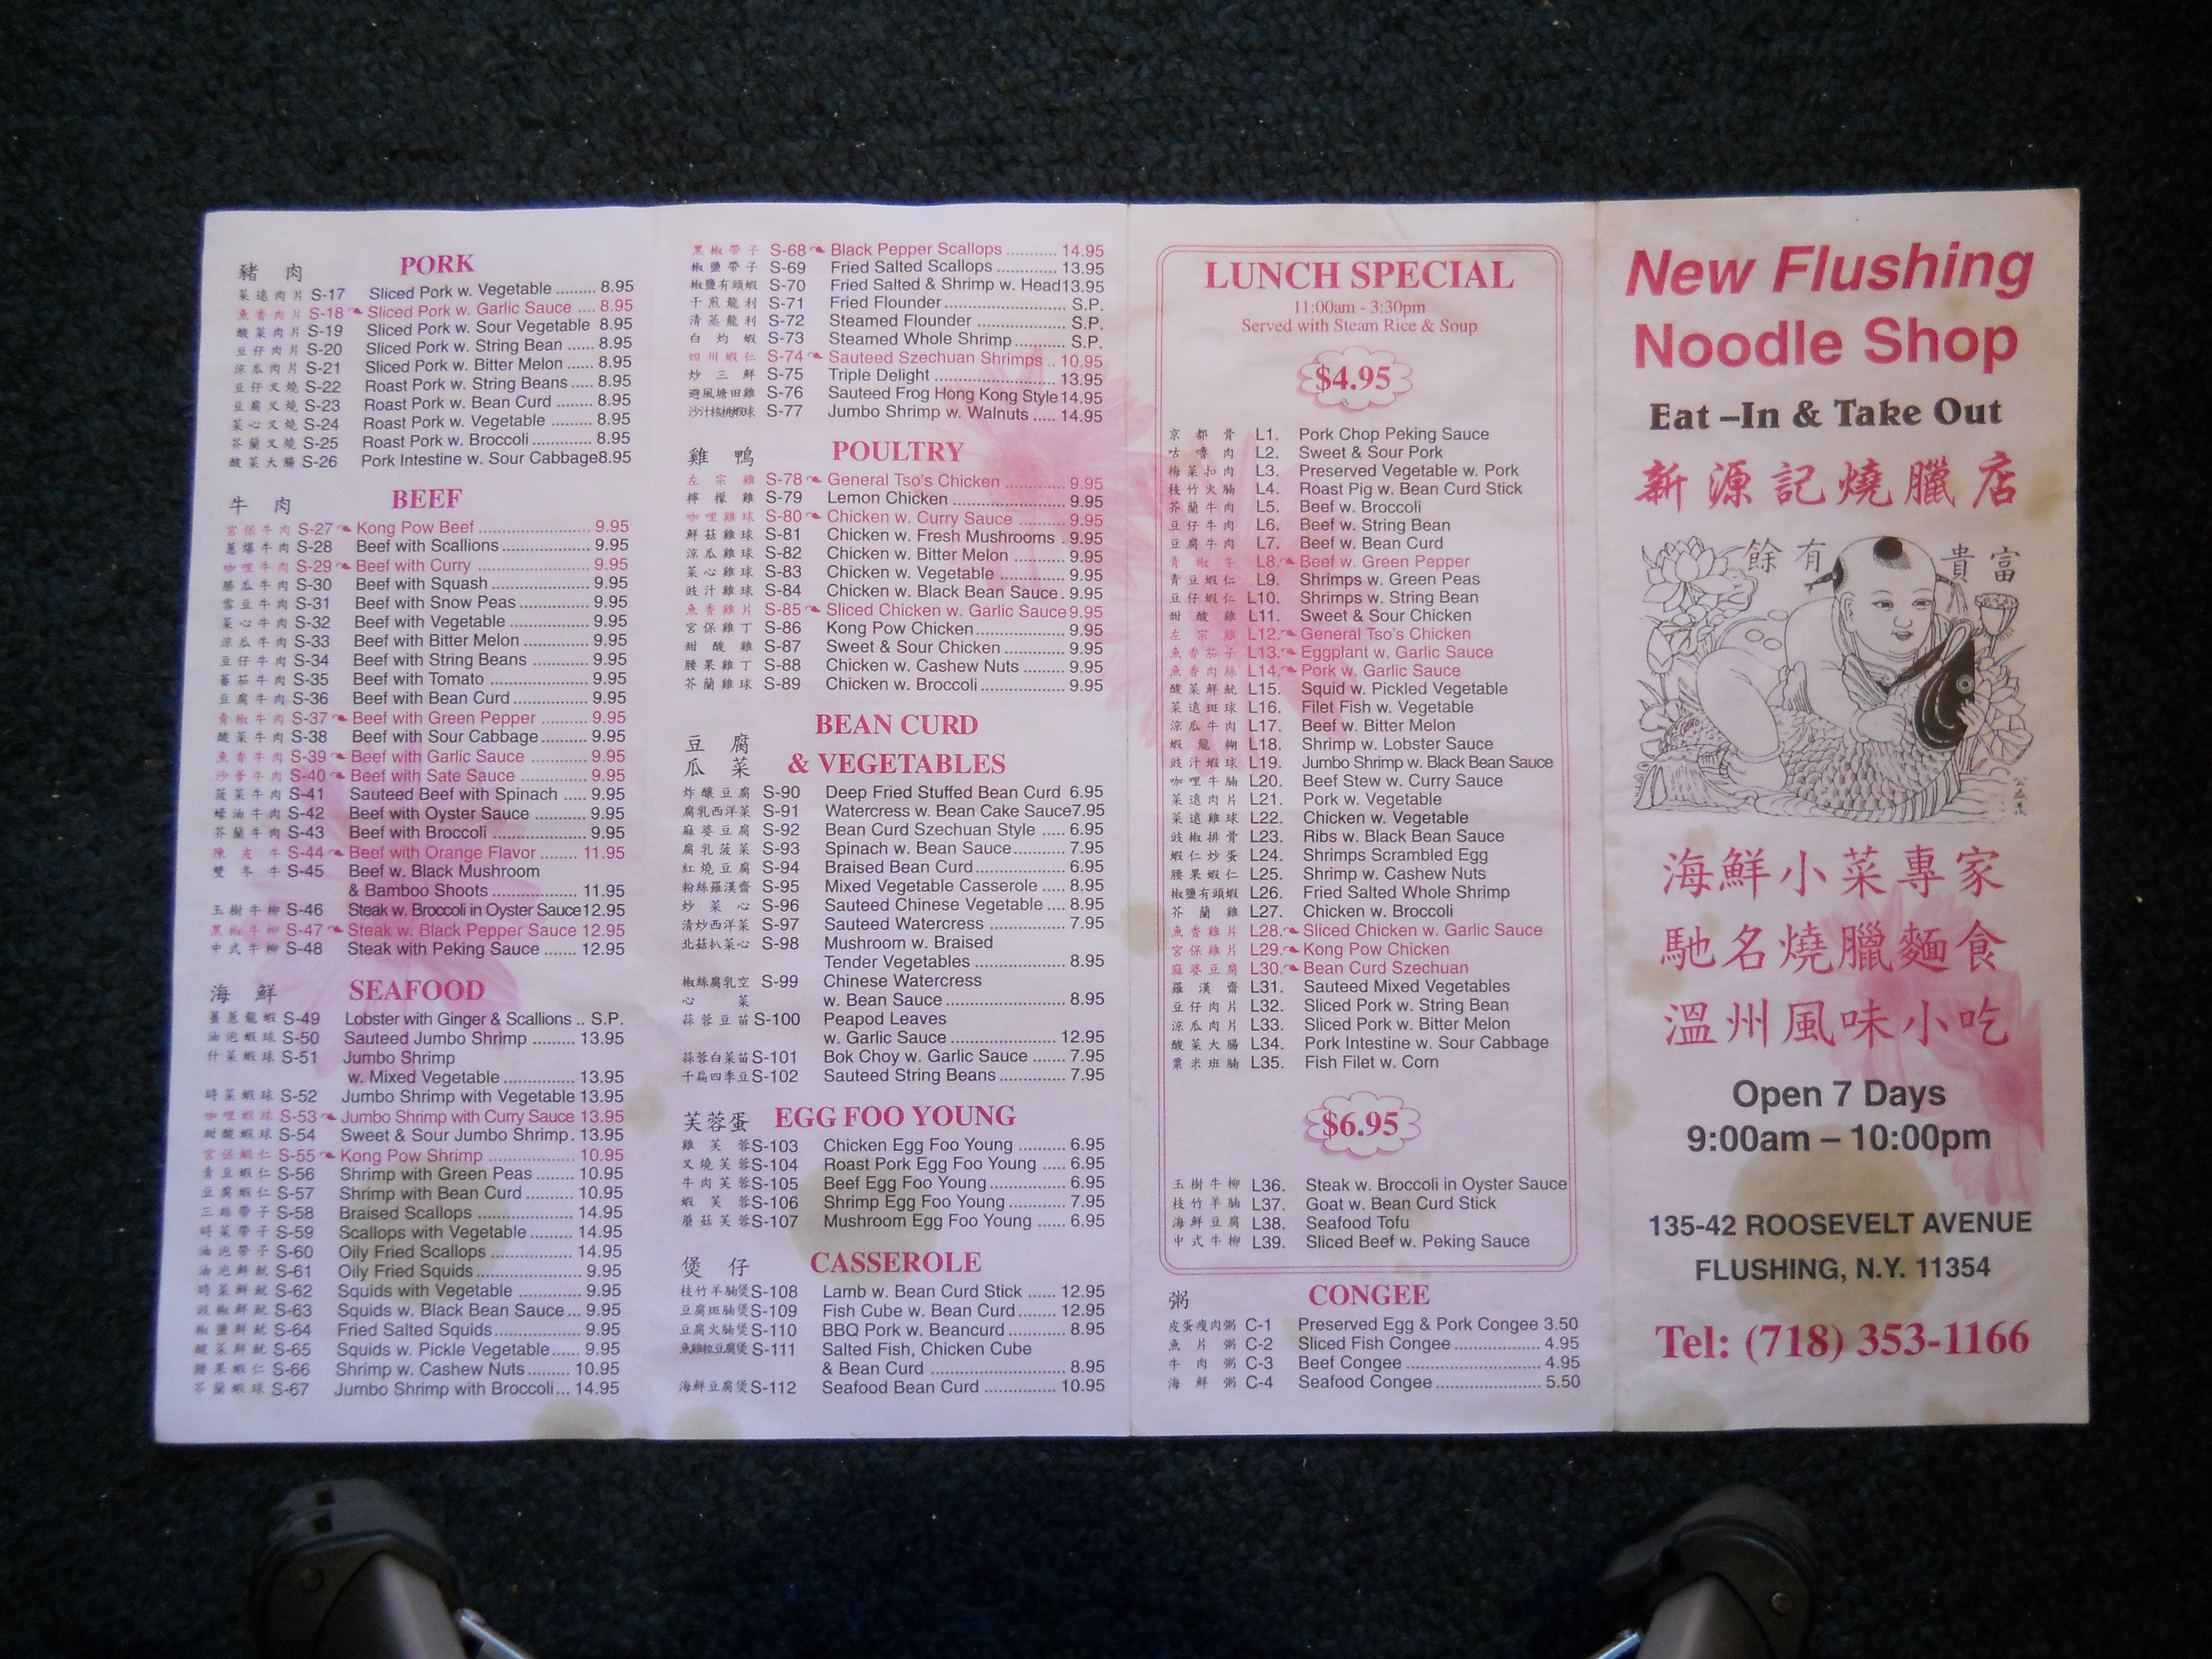 豬肉 PORK
菜遠肉片 S-17 Sliced Pork w. Vegetable ......... 8.95
魚香肉片 S-18 Sliced Pork w. Garlic Sauce .... 8.95
酸菜肉片 S-19 Sliced Pork w. Sour Vegetable 8.95
豆仔肉片 S-20 Sliced Pork w. String Bean ...... 8.95
涼瓜肉片 S-21 Sliced Pork w. Bitter Melon ...... 8.95
豆仔叉燒 S-22 Roast Pork w. String Beans ..... 8.95
豆腐叉燒 S-23 Roast Pork w. Bean Curd ........ 8.95
菜心叉燒 S-24 Roast Pork w. Vegetable .......... 8.95
芥蘭叉燒 S-25 Roast Pork w. Broccoli ............. 8.95
酸菜大腸 S-26 Pork Intestine w. Sour Cabbage8.95
牛肉 BEEF
宮保牛肉 S-27 Kong Pow Beef ......................... 9.95
蔥爆牛肉 S-28 Beef with Scallions .................... 9.95
咖哩牛肉 S-29 Beef with Curry .......................... 9.95
勝瓜牛肉 S-30 Beef with Squash ....................... 9.95
雪豆牛肉 S-31 Beef with Snow Peas ................. 9.95
菜心牛肉 S-32 Beef with Vegetable ................... 9.95
涼瓜牛肉 S-33 Beef with Bitter Melon ................ 9.95
豆仔牛肉 S-34 Beef with String Beans ............... 9.95
蕃茄牛肉 S-35 Beef with Tomato ....................... 9.95
豆腐牛肉 S-36 Beef with Bean Curd .................. 9.95
青椒牛肉 S-37 Beef with Green Pepper .......... 9.95
酸菜牛肉 S-38 Beef with Sour Cabbage .......... 9.95
魚香牛肉 S-39 Beef with Garlic Sauce ............. 9.95
沙爹牛肉 S-40 Beef with Sate Sauce ............... 9.95
菠菜牛肉 S-41 Sauteed Beef with Spinach ..... 9.95
蠔油牛肉 S-42 Beef with Oyster Sauce ............ 9.95
芥蘭牛肉 S-43 Beef with Broccoli ..................... 9.95
陳皮牛 S-44 Beef with Orange Flavor ........ 11.95
雙冬牛 S-45 Beef w. Black Mushroom
& Bamboo Shoots ................... 11.95
玉樹牛柳 S-46 Steak w. Broccoli in Oyster Sauce12.95
黑椒牛柳 S-47 Steak w. Black Pepper Sauce 12.95
中式牛柳 S-48 Steak with Peking Sauce ....... 12.95
海鮮 SEAFOOD
薑蔥龍蝦 S-49 Lobster with Ginger & Scallions .. S.P.
油泡蝦球 S-50 Sauteed Jumbo Shrimp ......... 13.95
什菜蝦球 S-51 Jumbo Shrimp
w. Mixed Vegetable ................ 13.95
時菜蝦球 S-52 Jumbo Shrimp with Vegetable 13.95
咖哩蝦球 S-53 Jumbo Shrimp with Curry Sauce 13.95
甜酸蝦球 S-54 Sweet & Sour Jumbo Shrimp. 13.95
宮保蝦仁 S-55 Kong Pow Shrimp ................. 10.95
青豆蝦仁 S-56 Shrimp with Green Peas ........ 10.95
豆腐蝦仁 S-57 Shrimp with Bean Curd .......... 10.95
三絲帶子 S-58 Braised Scallops ..................... 14.95
時菜帶子 S-59 Scallops with Vegetable ......... 14.95
油泡帶子 S-60 Oily Fried Scallops .................. 14.95
油泡鮮魷 S-61 Oily Fried Squids ....................... 9.95
時菜鮮魷 S-62 Squids with Vegetable .............. 9.95
豉椒鮮魷 S-63 Squids w. Black Bean Sauce ... 9.95
椒鹽鮮魷 S-64 Fried Salted Squids ................... 9.95
酸菜鮮魷 S-65 Squids w. Pickle Vegetable ...... 9.95
腰果蝦仁 S-66 Shrimp w. Cashew Nuts ......... 10.95
芥蘭蝦球 S-67 Jumbo Shrimp with Broccoli ... 14.95
黑椒帶子 S-68 Black Pepper Scallops .......... 14.95
椒鹽帶子 S-69 Fried Salted Scallops ............. 13.95
椒鹽有頭蝦 S-70 Fried Salted & Shrimp w. Head13.95
干煎龍利 S-71 Fried Flounder .......................... S.P.
清蒸龍利 S-72 Steamed Flounder ................... S.P.
白灼蝦 S-73 Steamed Whole Shrimp ........... S.P.
四川蝦仁 S-74 Sauteed Szechuan Shrimps .. 10.95
炒三鮮 S-75 Triple Delight .......................... 13.95
避風塘田雞 S-76 Sauteed Frog Hong Kong Style 14.95
沙汁核桃蝦球 S-77 Jumbo Shrimp w. Walnuts ..... 14.95
雞鴨 POULTRY
左宗雞 S-78 General Tso's Chicken ................ 9.95
檸檬雞 S-79 Lemon Chicken ......................... 9.95
咖哩雞球 S-80 Chicken w. Curry Sauce ........... 9.95
鮮菇雞球 S-81 Chicken w. Fresh Mushrooms . 9.95
涼瓜雞球 S-82 Chicken w. Bitter Melon ............ 9.95
菜心雞球 S-83 Chicken w. Vegetable ............... 9.95
豉汁雞球 S-84 Chicken w. Black Bean Sauce . 9.95
魚香雞片 S-85 Sliced Chicken w. Garlic Sauce 9.95
宮保雞丁 S-86 Kong Pow Chicken .................... 9.95
甜酸雞 S-87 Sweet & Sour Chicken .............. 9.95
腰果雞丁 S-88 Chicken w. Cashew Nuts .......... 9.95
芥蘭雞球 S-89 Chicken w. Broccoli ................... 9.95
豆腐 BEAN CURD
瓜菜 & VEGETABLES
炸釀豆腐 S-90 Deep Fried Stuffed Bean Curd 6.95
腐乳西洋菜 S-91 Watercress w. Bean Cake Sauce7.95
麻婆豆腐 S-92 Bean Curd Szechuan Style ..... 6.95
腐乳菠菜 S-93 Spinach w. Bean Sauce ........... 7.95
紅燒豆腐 S-94 Braised Bean Curd .................... 6.95
粉絲羅漢齋 S-95 Mixed Vegetable Casserole ..... 8.95
炒菜心 S-96 Sauteed Chinese Vegetable .... 8.95
清炒西洋菜 S-97 Sauteed Watercress ................. 7.95
北菇扒菜心 S-98 Mushroom w. Braised
Tender Vegetables .................... 8.95
椒絲腐乳空 S-99 Chinese Watercress
心菜 w. Bean Sauce ......................... 8.95
蒜蓉豆苗 S-100 Peapod Leaves
w. Garlic Sauce ....................... 12.95
蒜蓉白菜苗 S-101 Bok Choy w. Garlic Sauce ....... 7.95
干扁四季豆 S-102 Sauteed String Beans ............... 7.95
芙蓉蛋 EGG FOO YOUNG
雞芙蓉 S-103 Chicken Egg Foo Young ........... 6.95
叉燒芙蓉 S-104 Roast Pork Egg Foo Young ..... 6.95
牛肉芙蓉 S-105 Beef Egg Foo Young ................. 6.95
蝦芙蓉 S-106 Shrimp Egg Foo Young ............. 7.95
蘑菇芙蓉 S-107 Mushroom Egg Foo Young ...... 6.95
煲仔 CASSEROLE
枝竹羊腩煲 S-108 Lamb w. Bean Curd Stick ...... 12.95
豆腐斑腩煲 S-109 Fish Cube w. Bean Curd ........ 12.95
豆腐火腩煲 S-110 BBQ Pork w. Beancurd ............ 8.95
S-111 Salted Fish, Chicken Cube
& Bean Curd ............................. 8.95
海鮮豆腐煲 S-112 Seafood Bean Curd ............... 10.95
LUNCH SPECIAL
11:00am - 3:30pm
Served with Steam Rice & Soup
$4.95
京都骨 L1. Pork Chop Peking Sauce
咕嚕肉 L2. Sweet & Sour Pork
梅菜扣肉 L3. Preserved Vegetable w. Pork
枝竹火腩 L4. Roast Pig w. Bean Curd Stick
芥蘭牛肉 L5. Beef w. Broccoli
豆仔牛肉 L6. Beef w. String Bean
豆腐牛肉 L7. Beef w. Bean Curd
青椒牛 L8. Beef w. Green Pepper
青豆蝦仁 L9. Shrimps w. Green Peas
豆仔蝦仁 L10. Shrimps w. String Bean
甜酸雞 L11. Sweet & Sour Chicken
左宗雞 L12. General Tso's Chicken
魚香茄子 L13. Eggplant w. Garlic Sauce
魚香肉絲 L14. Pork w. Garlic Sauce
酸菜鮮魷 L15. Squid w. Pickled Vegetable
菜遠斑球 L16. Filet Fish w. Vegetable
涼瓜牛肉 L17. Beef w. Bitter Melon
蝦龍糊 L18. Shrimp w. Lobster Sauce
豉汁蝦球 L19. Jumbo Shrimp w. Black Bean Sauce
咖哩牛腩 L20. Beef Stew w. Curry Sauce
菜遠肉片 L21. Pork w. Vegetable
菜遠雞球 L22. Chicken w. Vegetable
豉椒排骨 L23. Ribs w. Black Bean Sauce
蝦仁炒蛋 L24. Shrimps Scrambled Egg
腰果蝦仁 L25. Shrimp w. Cashew Nuts
椒鹽有頭蝦 L26. Fried Salted Whole Shrimp
芥蘭雞 L27. Chicken w. Broccoli
魚香雞片 L28. Sliced Chicken w. Garlic Sauce
宮保雞片 L29. Kong Pow Chicken
麻婆豆腐 L30. Bean Curd Szechuan
羅漢齋 L31. Sauteed Mixed Vegetables
豆仔肉片 L32. Sliced Pork w. String Bean
涼瓜肉片 L33. Sliced Pork w. Bitter Melon
酸菜大腸 L34. Pork Intestine w. Sour Cabbage
粟米班腩 L35. Fish Filet w. Corn
$6.95
玉樹牛柳 L36. Steak w. Broccoli in Oyster Sauce
枝竹羊腩 L37. Goat w. Bean Curd Stick
海鮮豆腐 L38. Seafood Tofu
中式牛柳 L39. Sliced Beef w. Peking Sauce
粥 CONGEE
皮蛋瘦肉粥 C-1 Preserved Egg & Pork Congee 3.50
魚片粥 C-2 Sliced Fish Congee .................. 4.95
牛肉粥 C-3 Beef Congee ............................ 4.95
海鮮粥 C-4 Seafood Congee ...................... 5.50
New Flushing
Noodle Shop
Eat –In & Take Out
新源記燒臘店
餘有貴富
海鮮小菜專家
馳名燒臘麵食
溫州風味小吃
Open 7 Days
9:00am – 10:00pm
135-42 ROOSEVELT AVENUE
FLUSHING, N.Y. 11354
Tel: (718) 353-1166